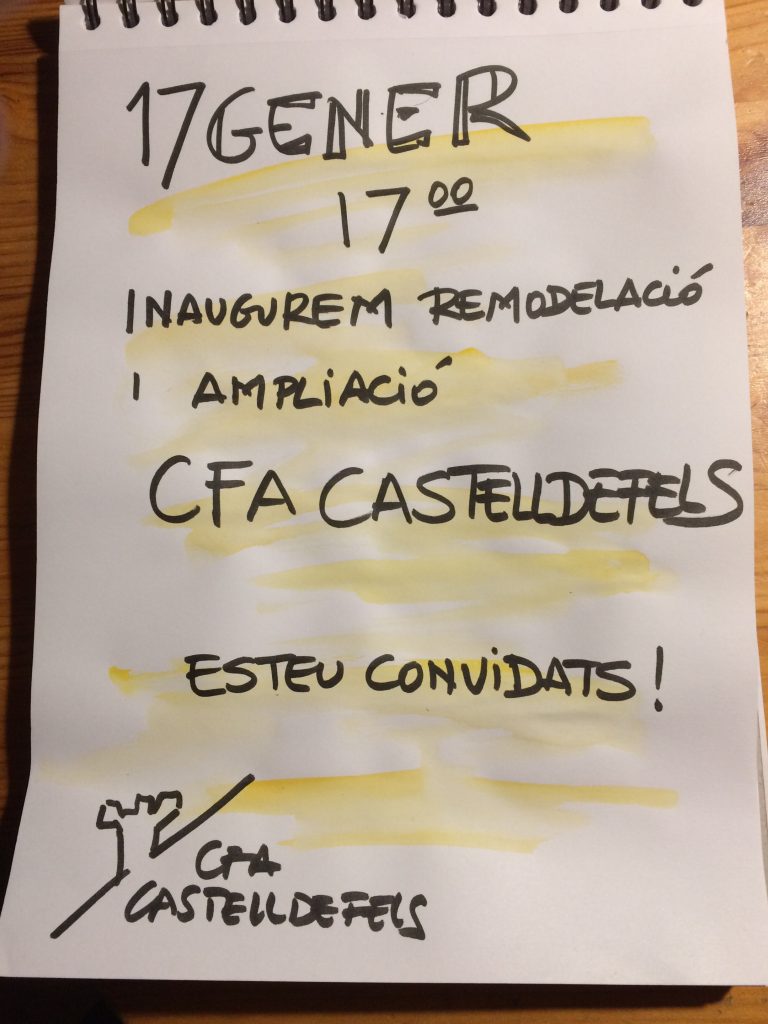 17 GENER
17 00
INAUGUREM REMODELACIÓ
I AMPLIACIÓ
CFA CASTELLDEFELS
ESTEU CONVIDATS!
CFA
CASTELLDEFELS